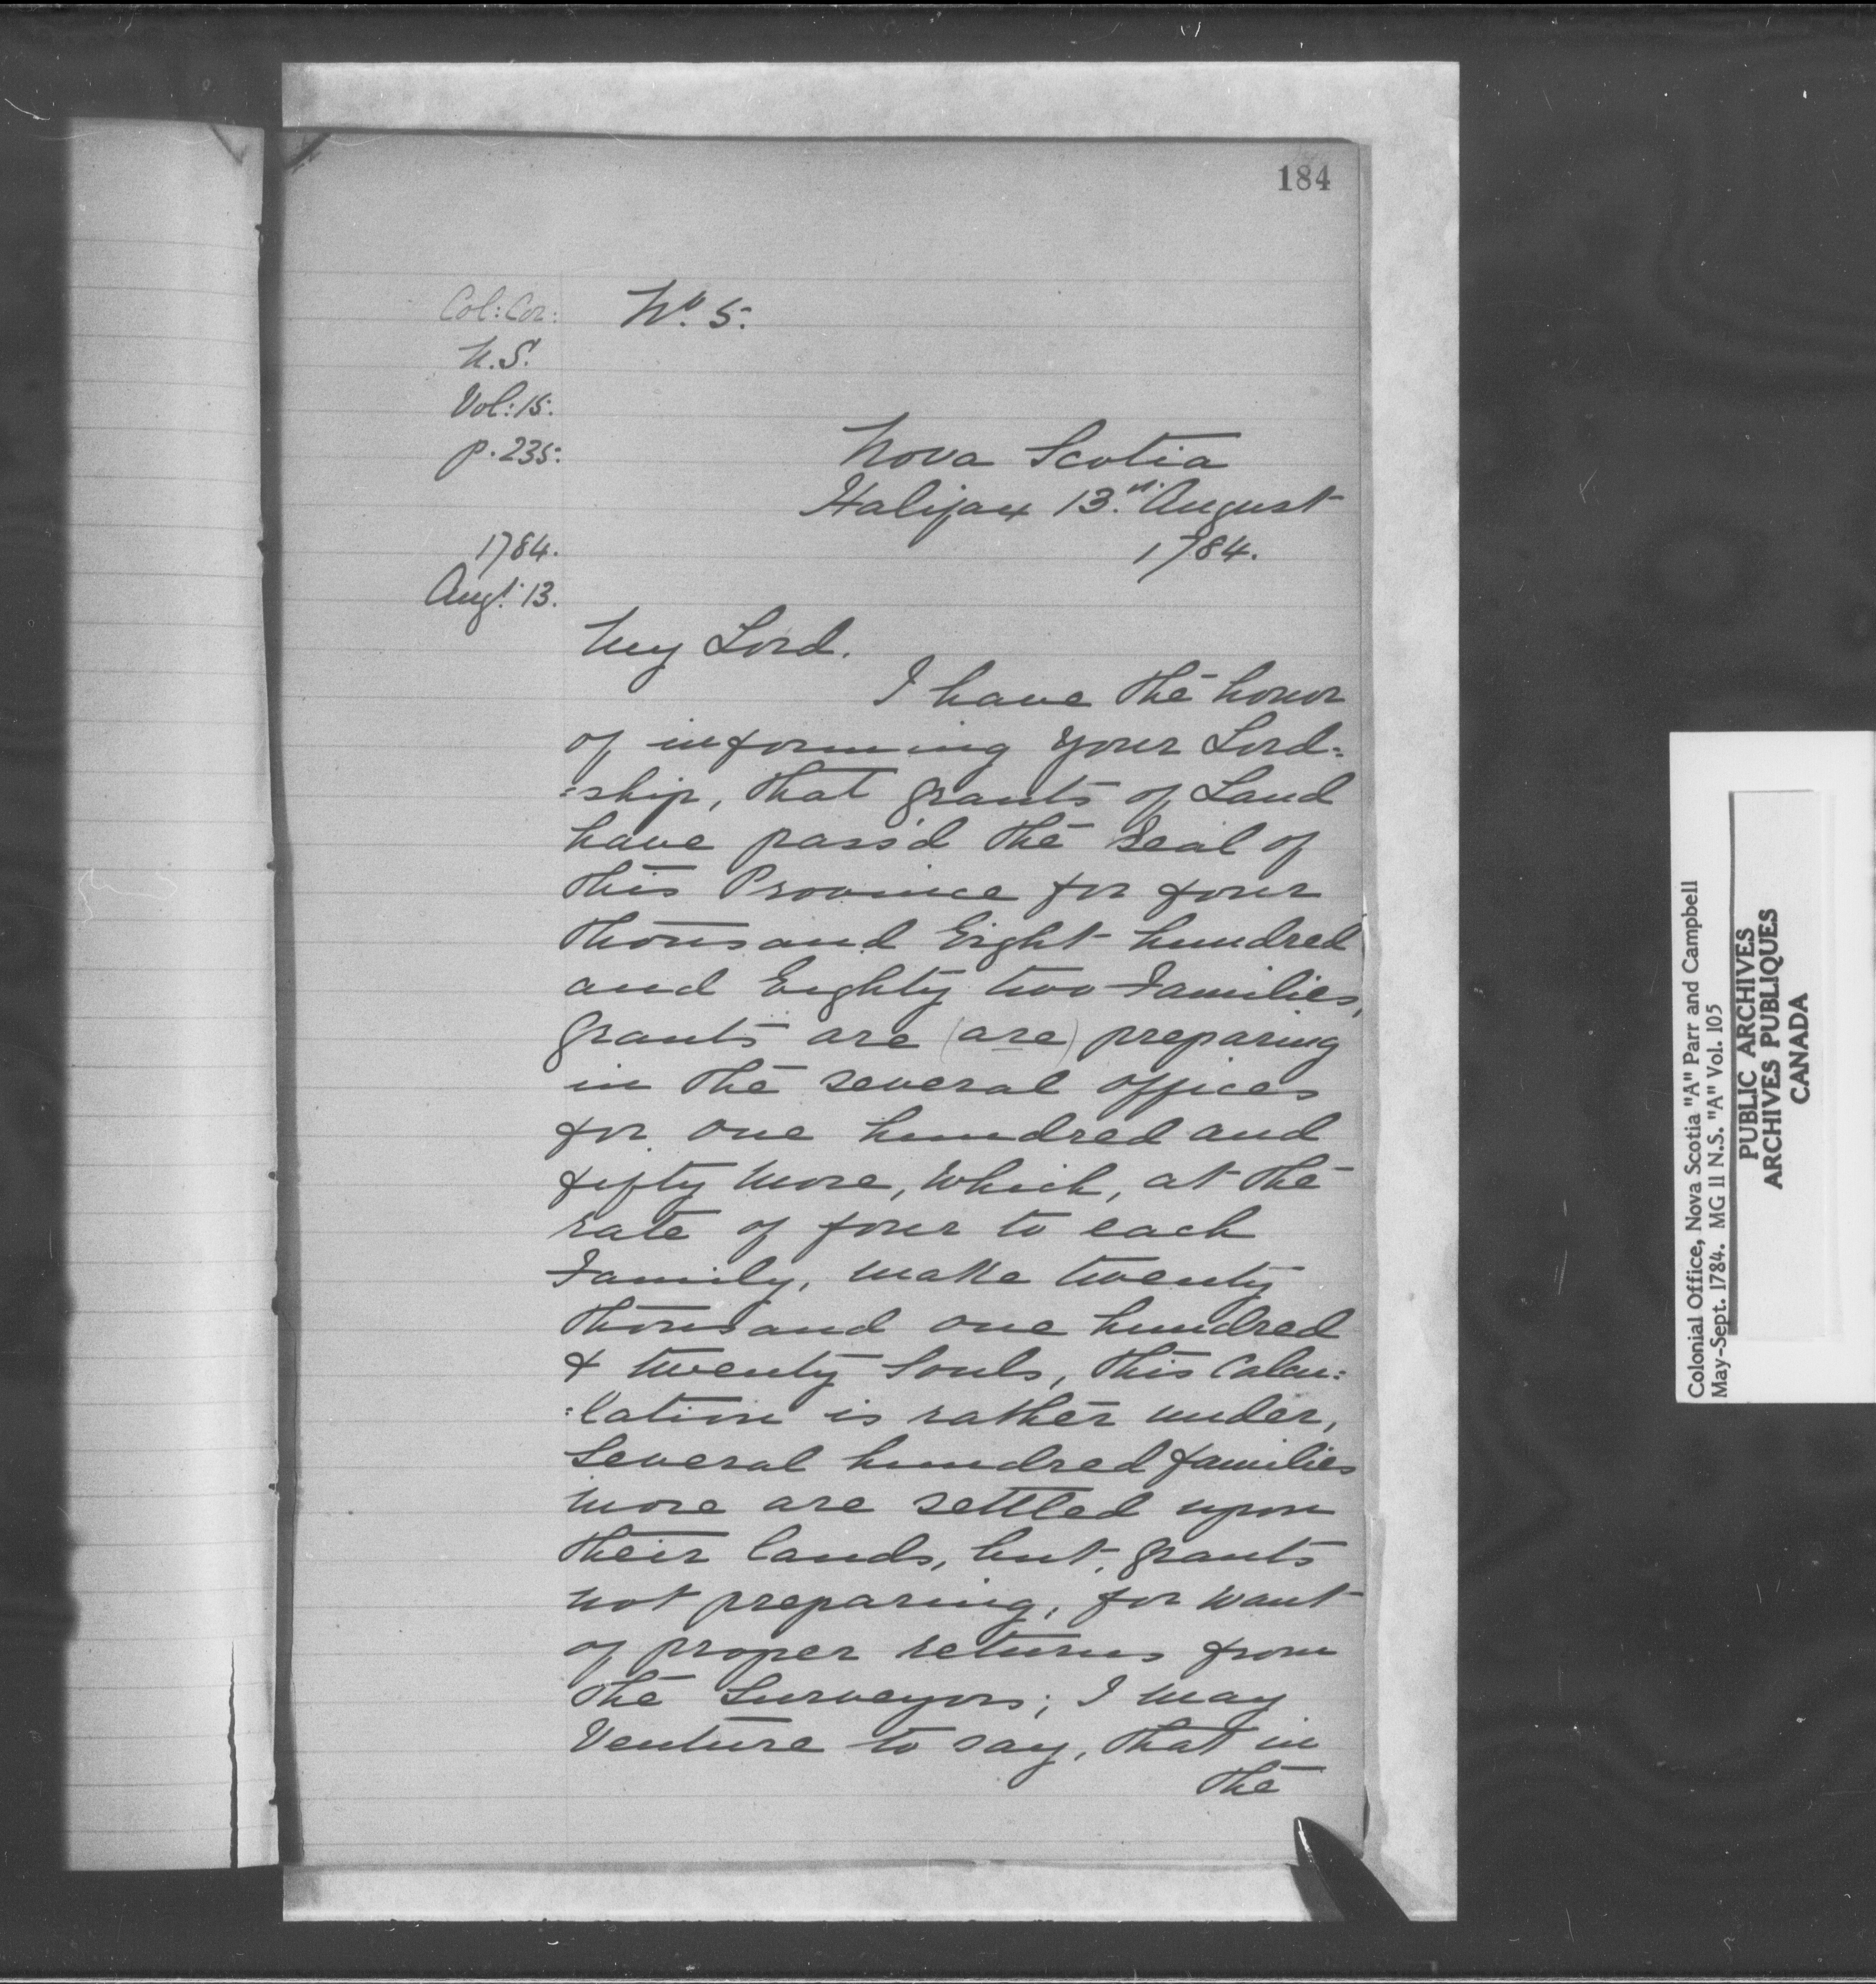 184
Col: Cor:
N.S.
Vol: 15.
p. 235:
1784.
Augt. 13.
No. 5.
Nova Scotia
Halifax 13th. August
1784.
My Lord.
I have the honor
of informing Your Lord=
=ship, that grants of Land
have pass'd the Seal of
this Province for four
thousand Eight hundred
and Eighty two Families,
grants are (are) preparing
in the several offices
for one hundred and
fifty more, which, at the
rate of four to each
Family, make twenty
thousand one hundred
& twenty Souls, this Calcu=
=lation is rather under,
Several hundred families
more are settled upon
their lands, but, grants
not preparing, for want
of proper returns from
the Surveyors; I may
Venture to say, that in
the
Colonial Office, Nova Scotia "A" Parr and Campbell
May-Sept. 1784. MG 11 N.S. "A" Vol. 105
PUBLIC ARCHIVES
ARCHIVES PUBLIQUES
CANADA